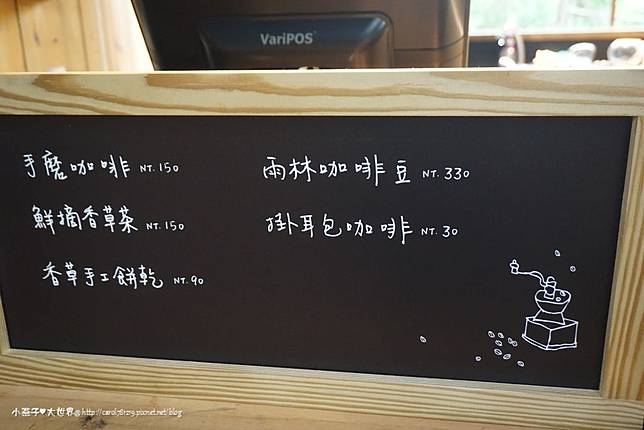 VariPOS
手磨咖啡 NT.150
鮮摘香草茶 NT.150
香草手工餅乾 NT.90
雨林咖啡豆 NT.330
掛耳包咖啡 NT.30
小燕子♥大世界@http://carol78129.pixnet.net/blog